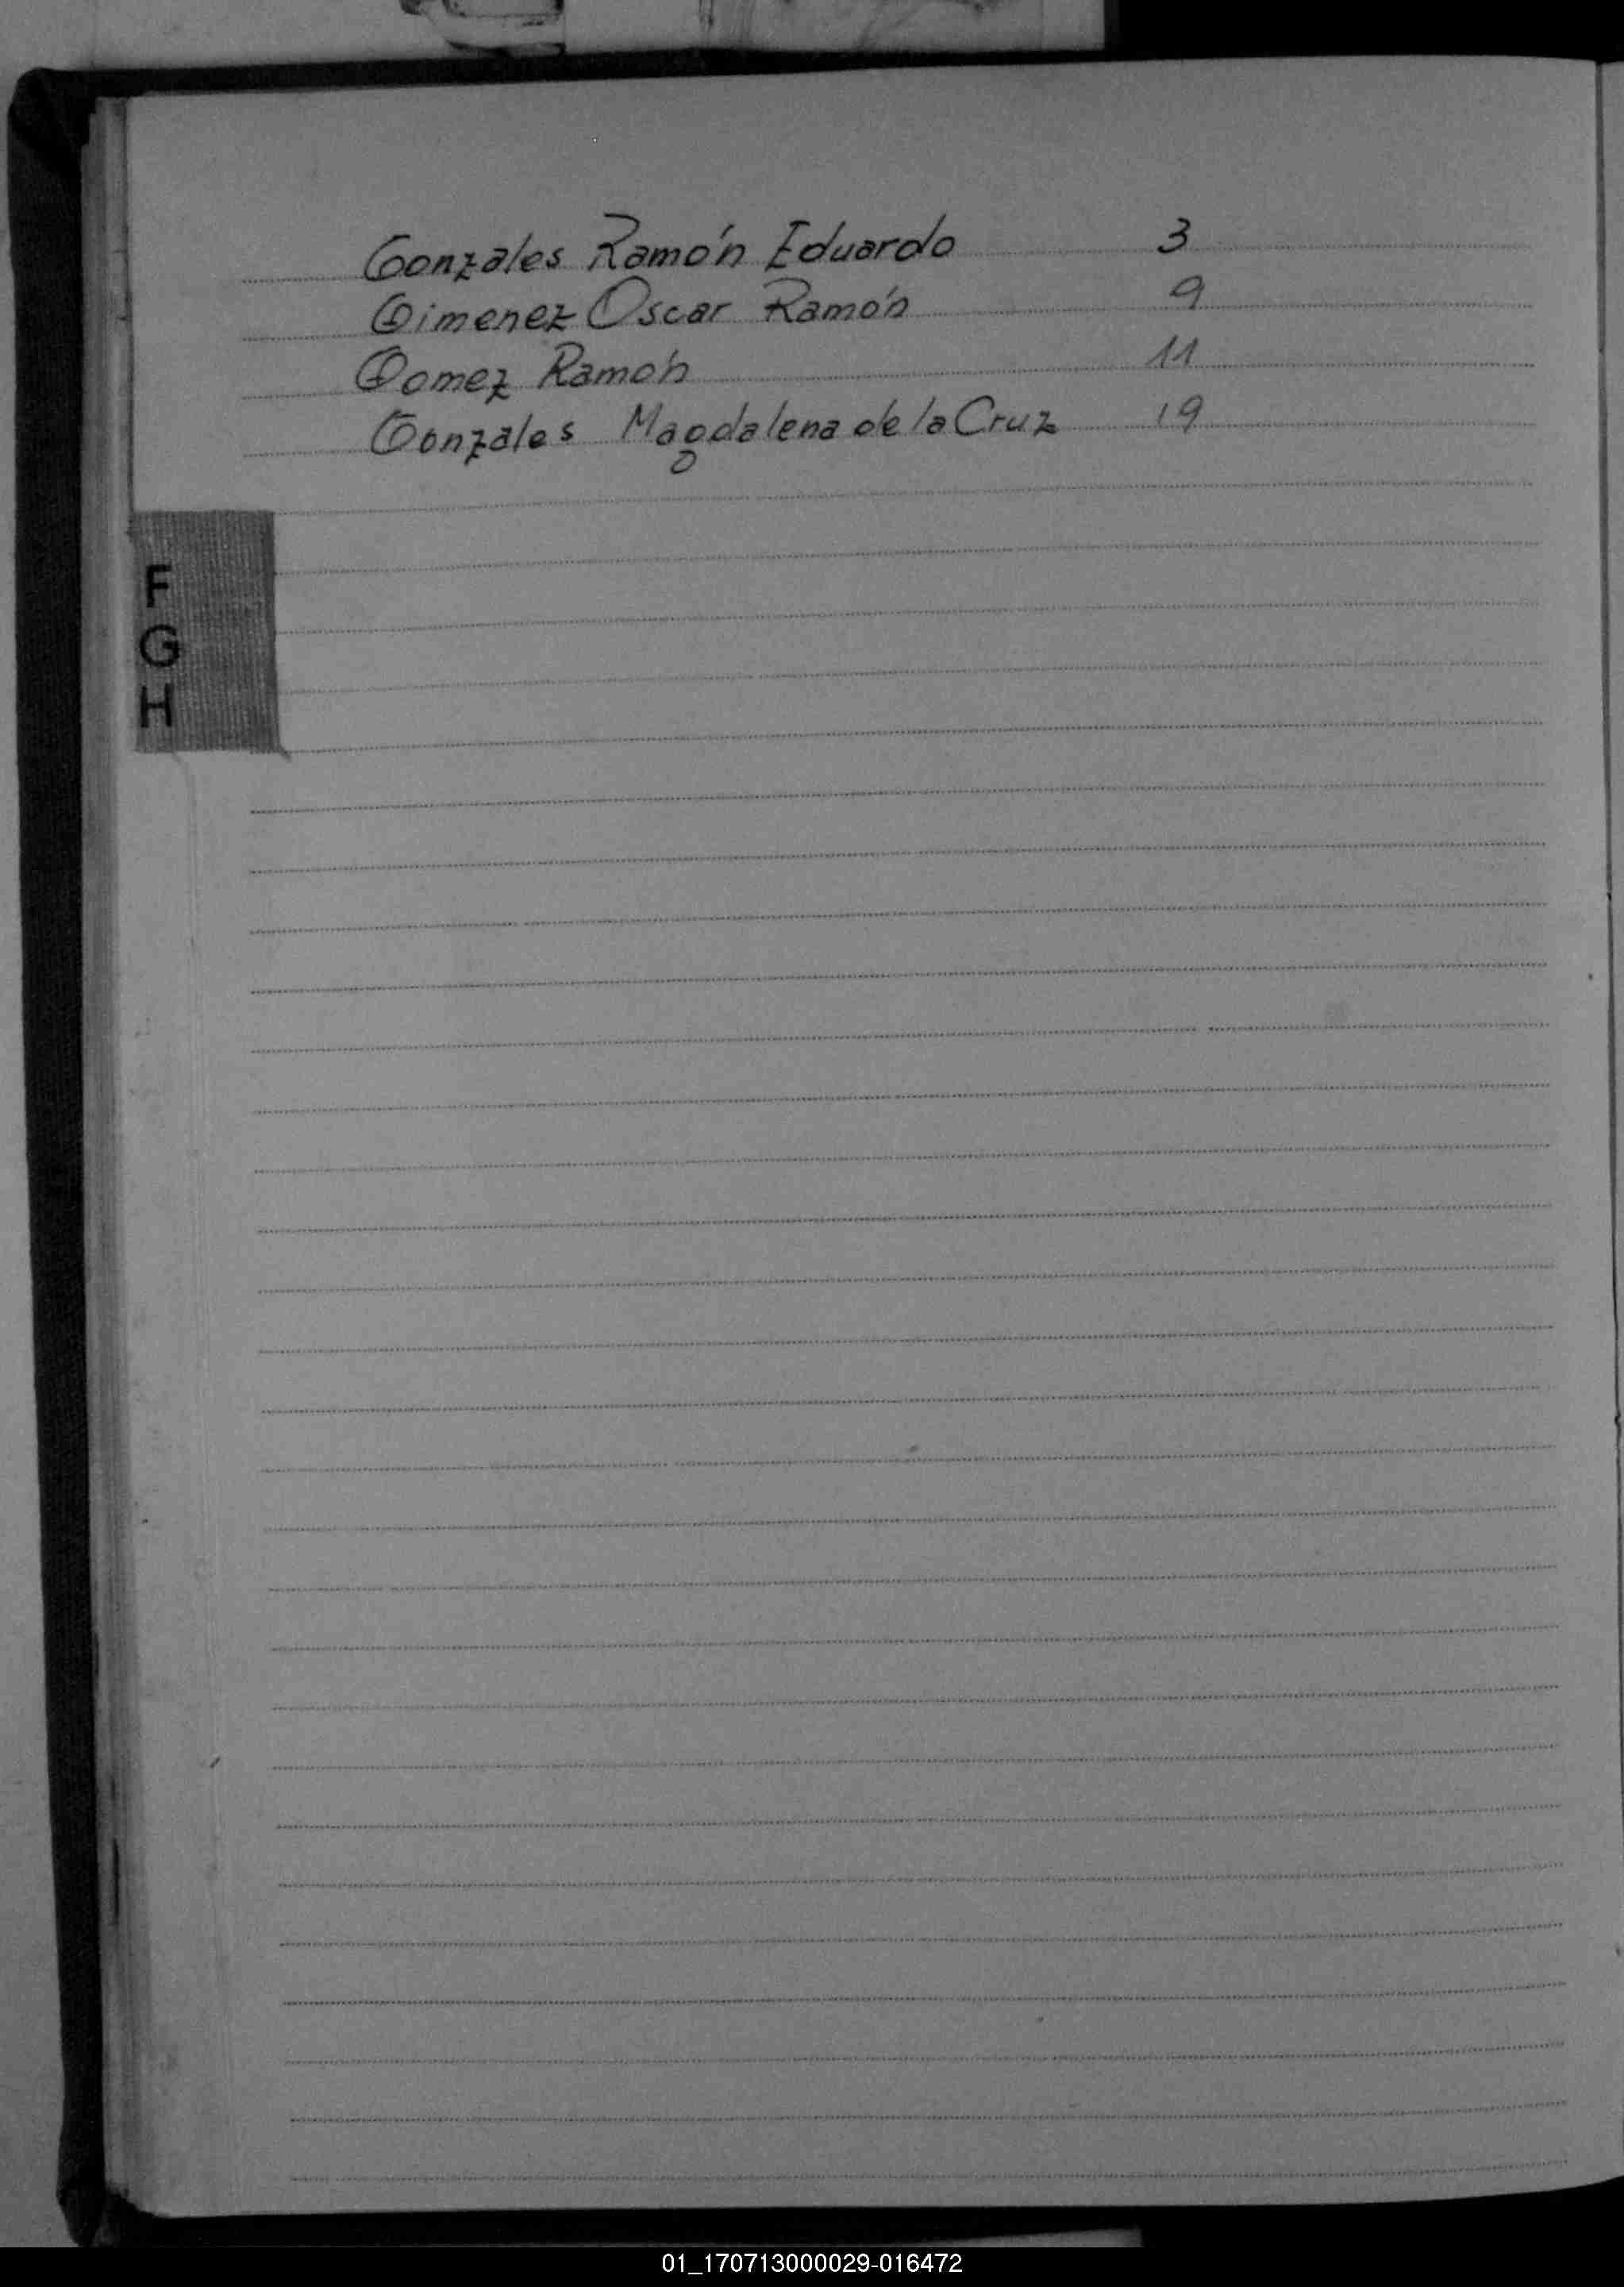 Gonzales Ramón Eduardo 3
Gimenez Oscar Ramón 9
Gomez Ramón 11
Gonzales Magdalena de la Cruz 19
F
G
H
01_170713000029-016472